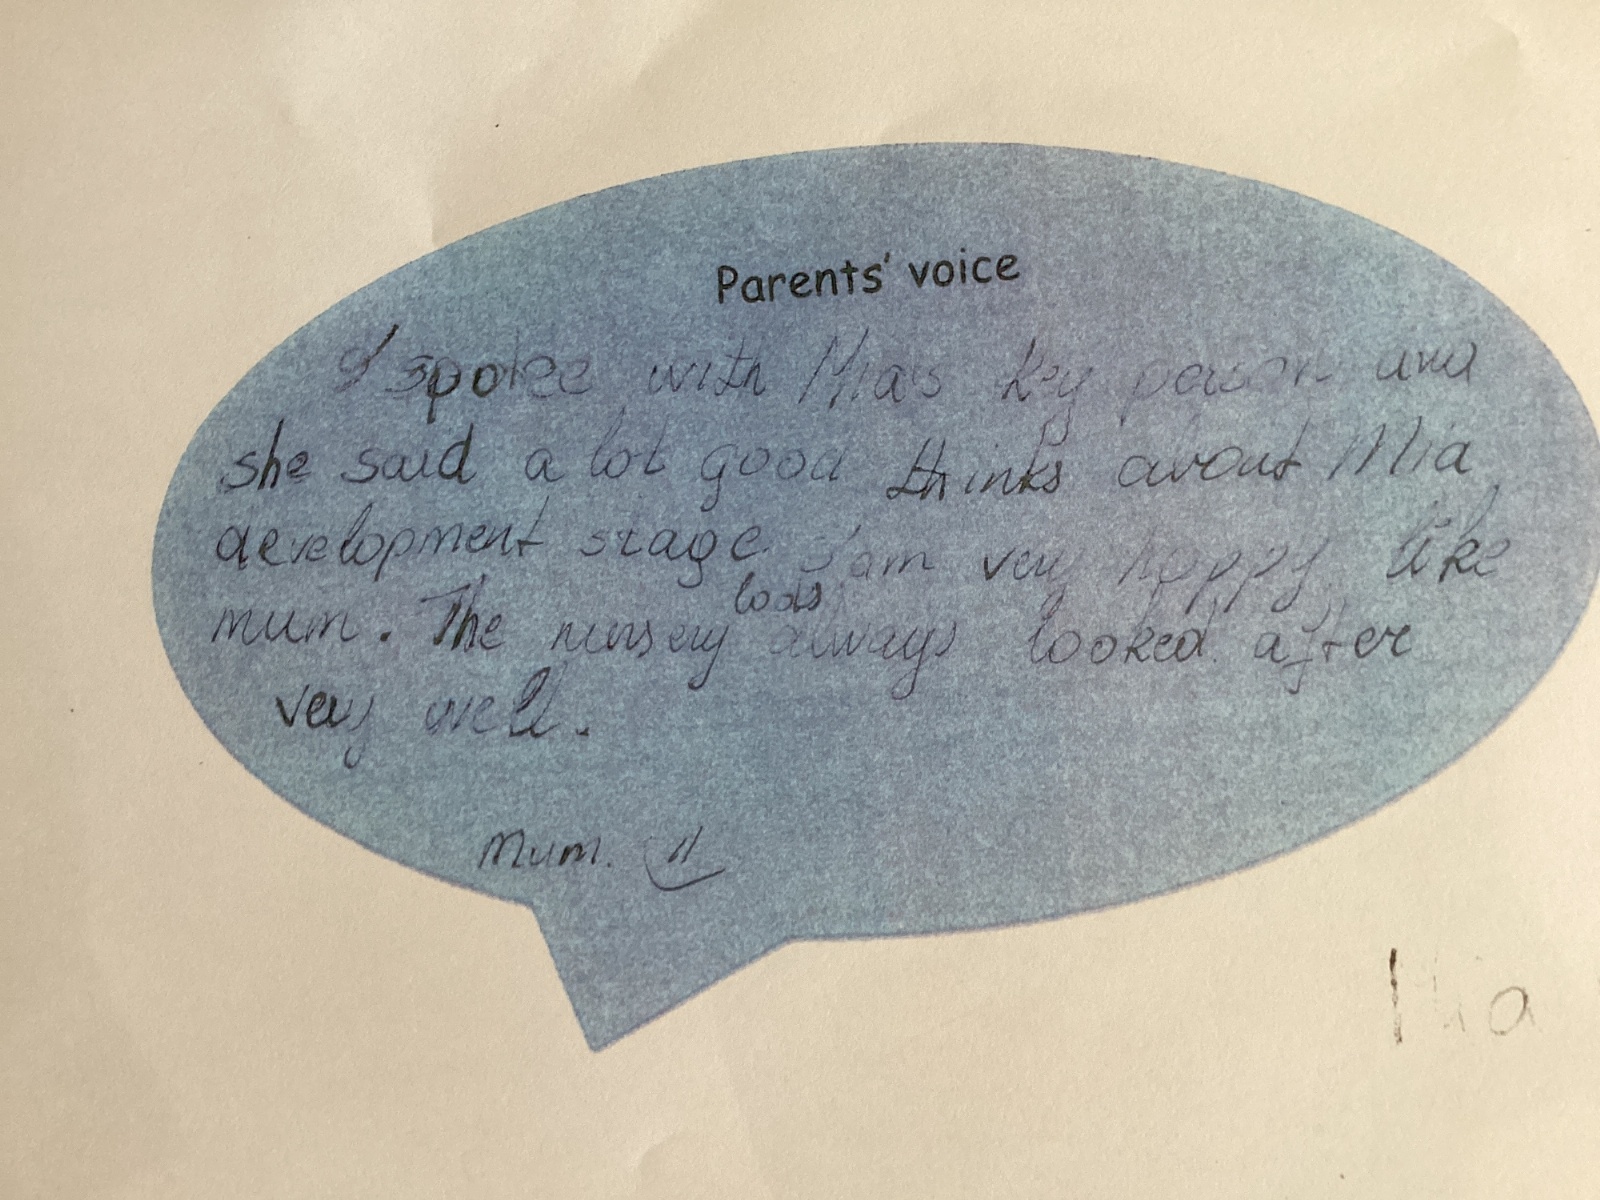 Parents' voice
I spoke with Mia's key person and
she said a lot good thinks about Mia
development stage. I'am very happy like
mum. The nursery always looked after
very well.
Mum.
Mia